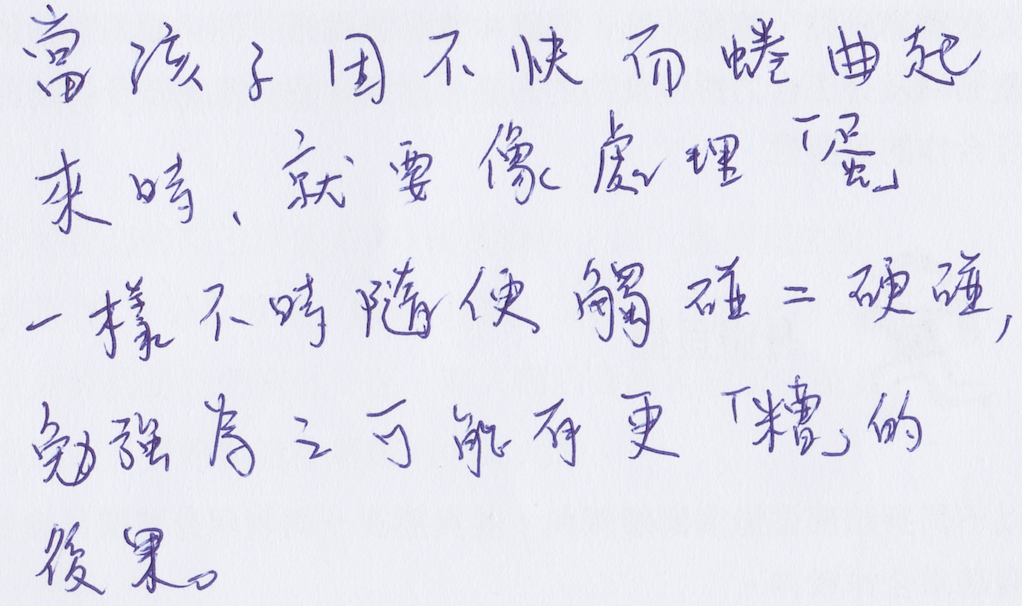 當孩子因不快而蜷曲起
來時、就要像處理「蛋」
一樣不時隨便觸碰=硬碰,
勉強為之可能有更「糟」的
後果。